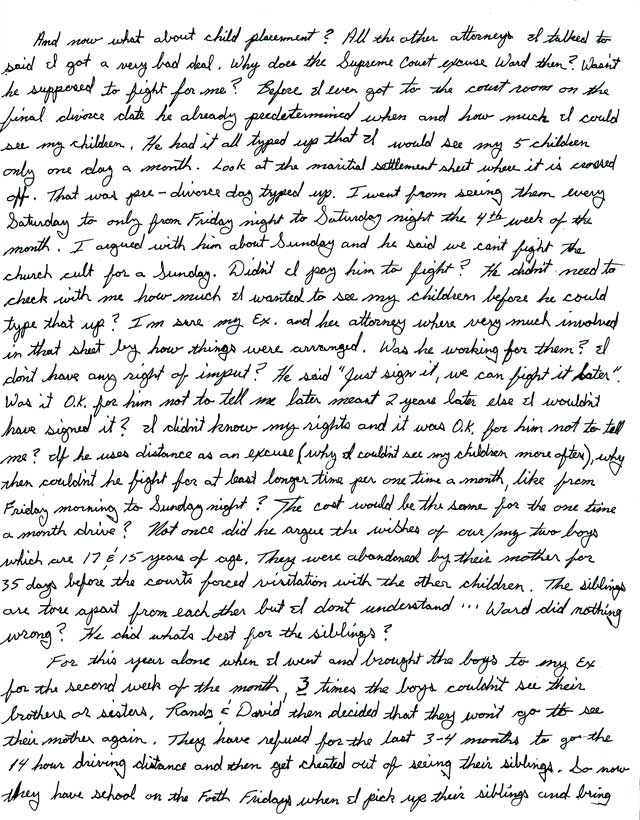 And now what about child placement? All the other attorneys I talked to
said I got a very bad deal. Why does the Supreme Court excuse Ward then? Wasn't
he supposed to fight for me? Before I even got to the court room on the
final divorce date he already predetermined when and how much I could
see my children. He had it all typed up that I would see my 5 children
only one day a month. Look at the maritial settlement sheet where it is crossed
off. That was pre-divorce day typed up. I went from seeing them every
Saturday to only from Friday night to Saturday night the 4th week of the
month. I argued with him about Sunday and he said we cant fight the
church cult for a Sunday. Didn't I pay him to fight? He didn't need to
check with me how much I wanted to see my children before he could
type that up? I'm sure my Ex. and her attorney where very much involved
in that sheet by how things were arranged. Was he working for them? I
don't have any right of imput? He said "Just sign it, we can fight it later".
Was it O.K. for him not to tell me later meant 2 years later else I wouldn't
have signed it? I didn't know my rights and it was O.K. for him not to tell
me? If he uses distance as an excuse (why I couldn't see my children more often), why
then couldn't he fight for at least longer time per one time a month, like from
Friday morning to Sunday night? The cost would be the same for the one time
a month drive? Not once did he argue the wishes of our/my two boys
which are 17 & 15 years of age. They were abandoned by their mother for
35 days before the courts forced visitation with the other children. The siblings
are tore apart from each other but I dont understand ... Ward did nothing
wrong? He did whats best for the siblings?
For this year alone when I went and brought the boys to my Ex
for the second week of the month, 3 times the boys couldn't see their
brothers or sisters, Randy & David then decided that they won't go to see
their mother again. They have refused for the last 3-4 months to go the
14 hour driving distance and then get cheated out of seeing their siblings. So now
they have school on the Forth Fridays when I pick up their siblings and bring